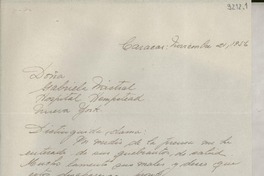 Caracas: Noviembre 21, 1956
Doña
Gabriela Mistral
Hospital Hempstead
Nueva York
Distinguida dama:
Por medio de la prensa me he
enterado de sus quebrantos de salud.
Mucho lamento sus males y deseo que